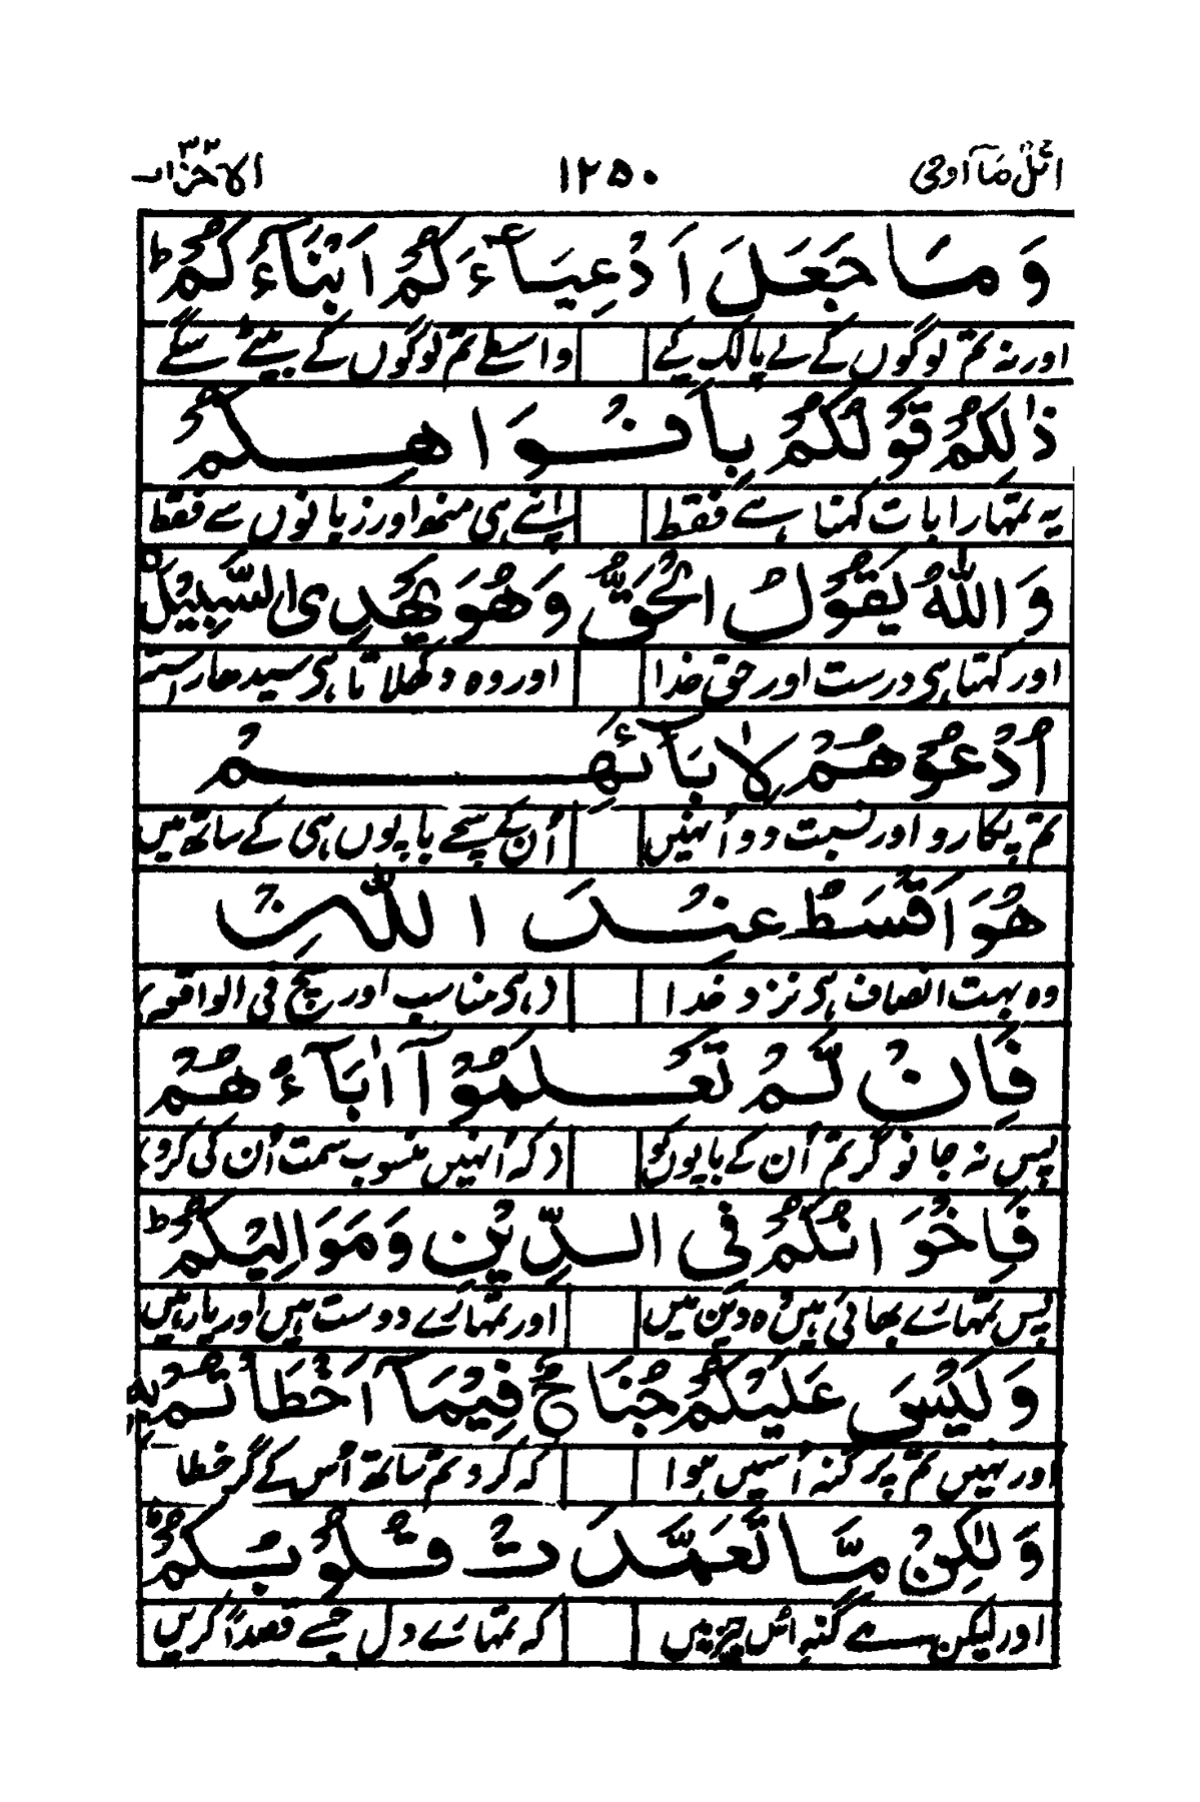 اتل ماۤ اوحی ۲۱ ۱۲۵۰ الاحزاب ۳۳
وَمَا جَعَلَ اَدْعِيَآءَكُمْ اَبْنَآءَكُمْ ؕ
اور نہ تم لوگوں کے لے پالک کے واسطے تم لوگوں کے بیٹے سگے
ذٰلِكُمْ قَوْلُكُمْ بِاَفْوَاهِكُمْ
یہ تمہارا بات کہنا ہے فقط اپنے ہی منھ اور زبانوں سے فقط
وَاللّٰهُ يَقُوْلُ الْحَقَّ وَهُوَ يَهْدِى السَّبِيْلَ
اور کہتا ہی درست اور حق خدا اور وہ دکھلاتا ہی سیدھا رستہ
اُدْعُوْهُمْ لِاٰبَآئِهِمْ
تم پکارو اور نسبت دو اُنہیں اُن کے سچے باپوں ہی کے ساتھ میں
هُوَ اَقْسَطُ عِنْدَ اللّٰهِ
وہ بہت انصاف ہی نزد خدا (ہی مناسب اور سچ فی الواقعہ)
فَاِنْ لَّمْ تَعْلَمُوْۤا اٰبَآءَهُمْ
پس نہ جانو گر تم اُن کے باپوں کو (کہ اُنہیں منسوب سمت اُن کی کرو)
فَاِخْوَانُكُمْ فِى الدِّيْنِ وَمَوَالِيْكُمْ ؕ
پس تمہارے بھائی ہیں وہ دین میں اور تمہارے دوست ہیں اور یار ہیں
وَلَيْسَ عَلَيْكُمْ جُنَاحٌ فِيْمَاۤ اَخْطَاْتُمْ بِهٖ
اور نہیں تم پر گنہ اُسمیں ہوا کہ کردو تم ساتھ اُس کے گر خطا
وَلٰكِنْ مَّا تَعَمَّدَتْ قُلُوْبُكُمْ ؕ
اور لیکن ہے گنہ اس چیز میں کہ تمہارے دل جسے قصداً کریں